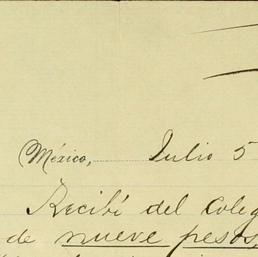 México, Julio 5
Recibí del Coleg
de nueve pesos,